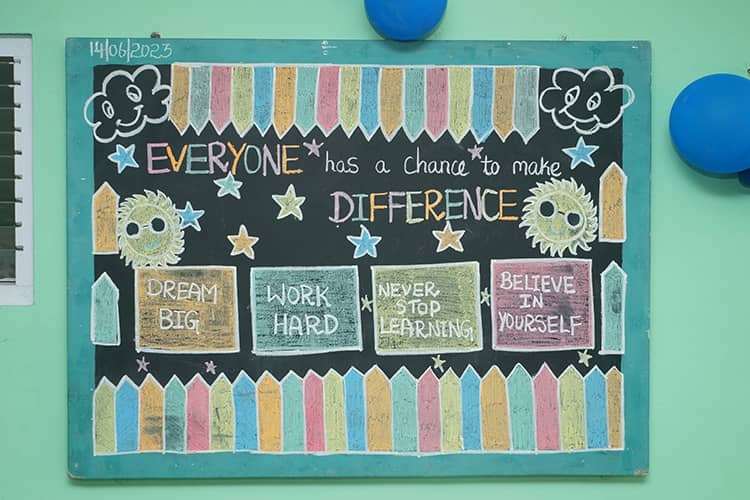 14/06/2023
EVERYONE has a chance to make
DIFFERENCE
DREAM
BIG
WORK
HARD
NEVER
STOP
LEARNING
BELIEVE
IN
YOURSELF